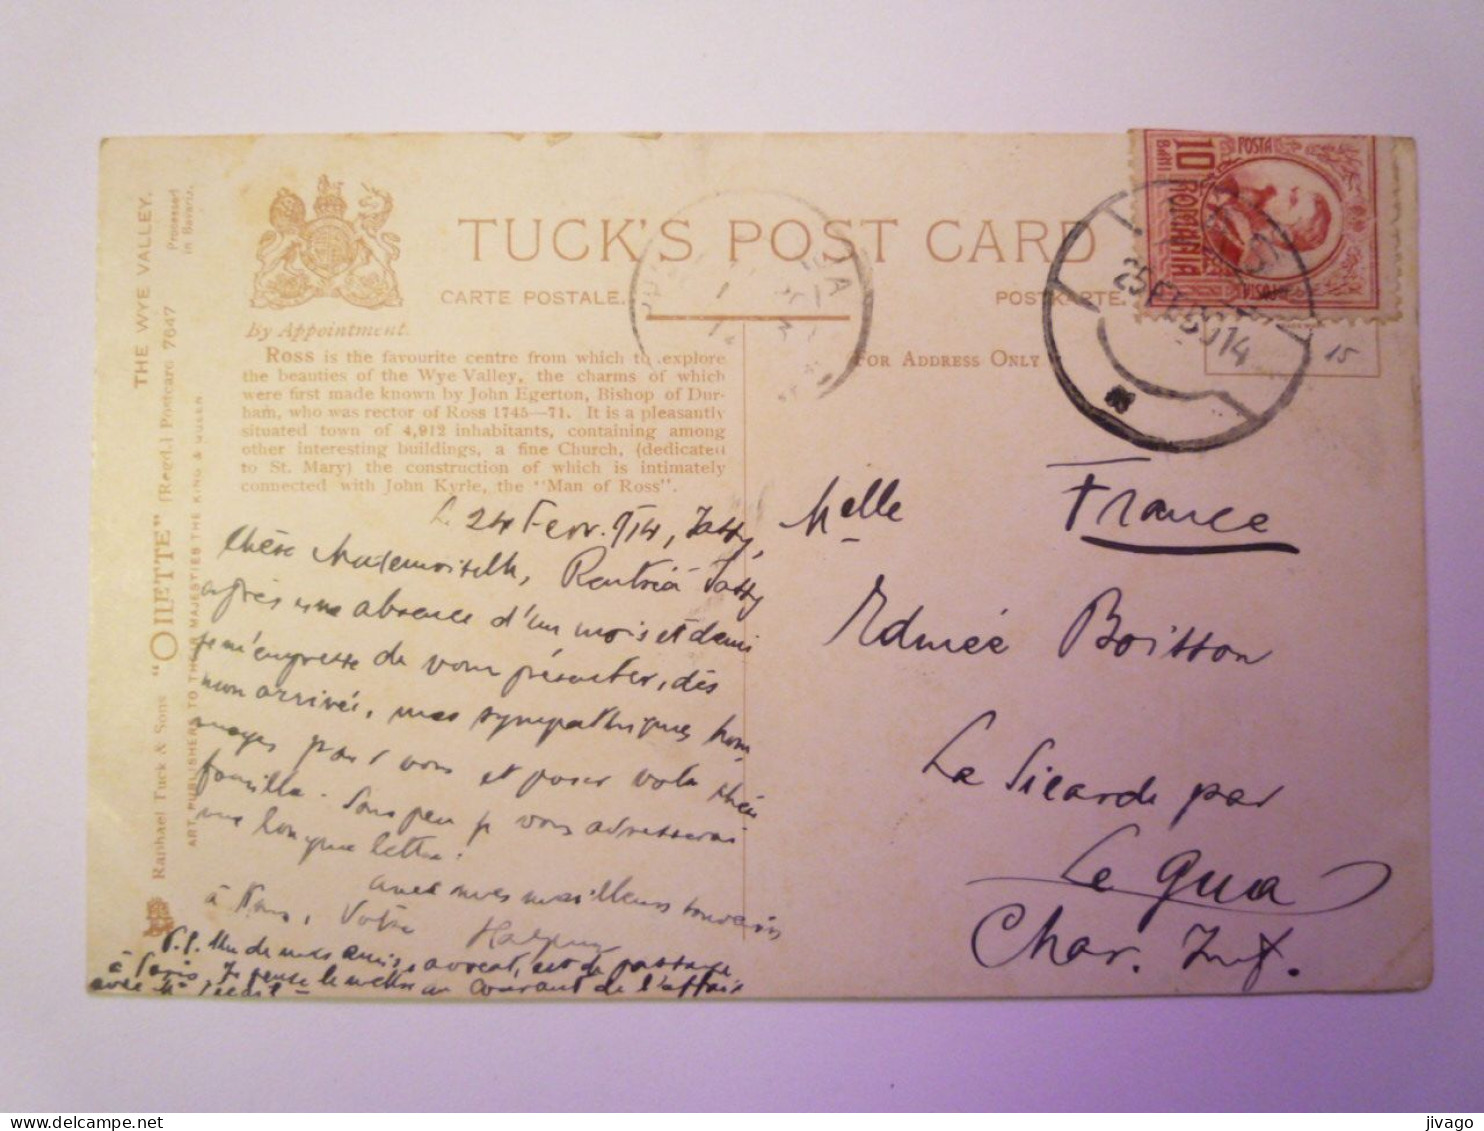 THE WYE VALLEY.
Processed
in Bavaria.
Raphael Tuck & Sons "OILETTE" [Regd.] Postcard 7647
ART PUBLISHERS TO THEIR MAJESTIES THE KING & QUEEN.
TUCK'S POST CARD
CARTE POSTALE.
POSTKARTE.
By Appointment.
FOR ADDRESS ONLY
Ross is the favourite centre from which to explore
the beauties of the Wye Valley, the charms of which
were first made known by John Egerton, Bishop of Dur-
ham, who was rector of Ross 1745—71. It is a pleasantly
situated town of 4,912 inhabitants, containing among
other interesting buildings, a fine Church, (dedicated
to St. Mary) the construction of which is intimately
connected with John Kyrle, the "Man of Ross".
POSTA
10
BANI
ROMANIA
25 FEB 914
15
24 Fevr. 914, Jassy,
Chère Mademoiselle, Rentré à Jassy
après une absence d'un mois et demi
je m'empresse de vous présenter, dès
mon arrivée, mes sympathiques hom
mages pour vous et pour votre chère
famille. Sous peu je vous adresserai
une longue lettre.
avec mes meilleurs souvenirs
à tous, Votre
P.S. Un de mes amis, avocat, est de passage
à Paris, je pense le mettre au courant de l'affaire
avec Mr
Melle
France
Edmée Boisson
Le Sicard par
Le Gua
Char. Inf.
jivago